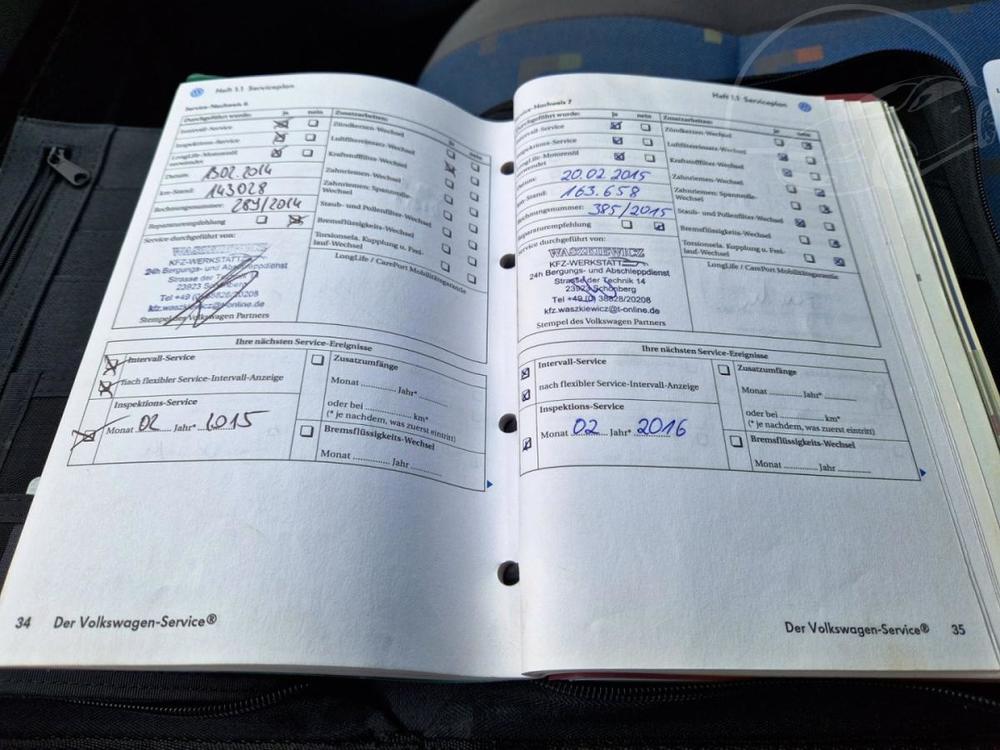 Heft 1.1 Serviceplan
Service-Nachweis 6
Durchgeführt wurde: ja nein
Intervall-Service
Inspektions-Service
LongLife-Motorenöl verwendet
Datum: 13.02.2014
km-Stand: 143028
Rechnungsnummer: 289/2014
Reparaturempfehlung
Service durchgeführt von:
KFZ-WERKSTATT
24h Bergungs- und Abschleppdienst
Strasse der Technik
23923 Schönberg
Tel +49 (0) 38828/20208
kfz.waszkiewicz@t-online.de
Stempel des Volkswagen Partners
Zusatzarbeiten: ja nein
Zündkerzen-Wechsel
Luftfiltereinsatz-Wechsel
Kraftstofffilter-Wechsel
Zahnriemen-Wechsel
Zahnriemen: Spannrolle-Wechsel
Staub- und Pollenfilter-Wechsel
Bremsflüssigkeits-Wechsel
Torsionsela. Kupplung u. Freilauf-Wechsel
LongLife / CarePort Mobilitätsgarantie
Ihre nächsten Service-Ereignisse
Intervall-Service
nach flexibler Service-Intervall-Anzeige
Inspektions-Service
Monat 02 Jahr* 2015
Zusatzumfänge
Monat ............ Jahr* ............
oder bei ............ km*
(* je nachdem, was zuerst eintritt)
Bremsflüssigkeits-Wechsel
Monat ............ Jahr ............
34 Der Volkswagen-Service®
Heft 1.1 Serviceplan
Service-Nachweis 7
Durchgeführt wurde: ja nein
Intervall-Service
Inspektions-Service
LongLife-Motorenöl verwendet
Datum: 20.02.2015
km-Stand: 163.658
Rechnungsnummer: 385/2015
Reparaturempfehlung
Service durchgeführt von:
WASZKIEWICZ
KFZ-WERKSTATT
24h Bergungs- und Abschleppdienst
Strasse der Technik 14
23923 Schönberg
Tel +49 (0) 38828/20208
kfz.waszkiewicz@t-online.de
Stempel des Volkswagen Partners
Zusatzarbeiten: ja nein
Zündkerzen-Wechsel
Luftfiltereinsatz-Wechsel
Kraftstofffilter-Wechsel
Zahnriemen-Wechsel
Zahnriemen: Spannrolle-Wechsel
Staub- und Pollenfilter-Wechsel
Bremsflüssigkeits-Wechsel
Torsionsela. Kupplung u. Freilauf-Wechsel
LongLife / CarePort Mobilitätsgarantie
Ihre nächsten Service-Ereignisse
Intervall-Service
nach flexibler Service-Intervall-Anzeige
Inspektions-Service
Monat 02 Jahr* 2016
Zusatzumfänge
Monat ............ Jahr* ............
oder bei ............ km*
(* je nachdem, was zuerst eintritt)
Bremsflüssigkeits-Wechsel
Monat ............ Jahr ............
Der Volkswagen-Service® 35